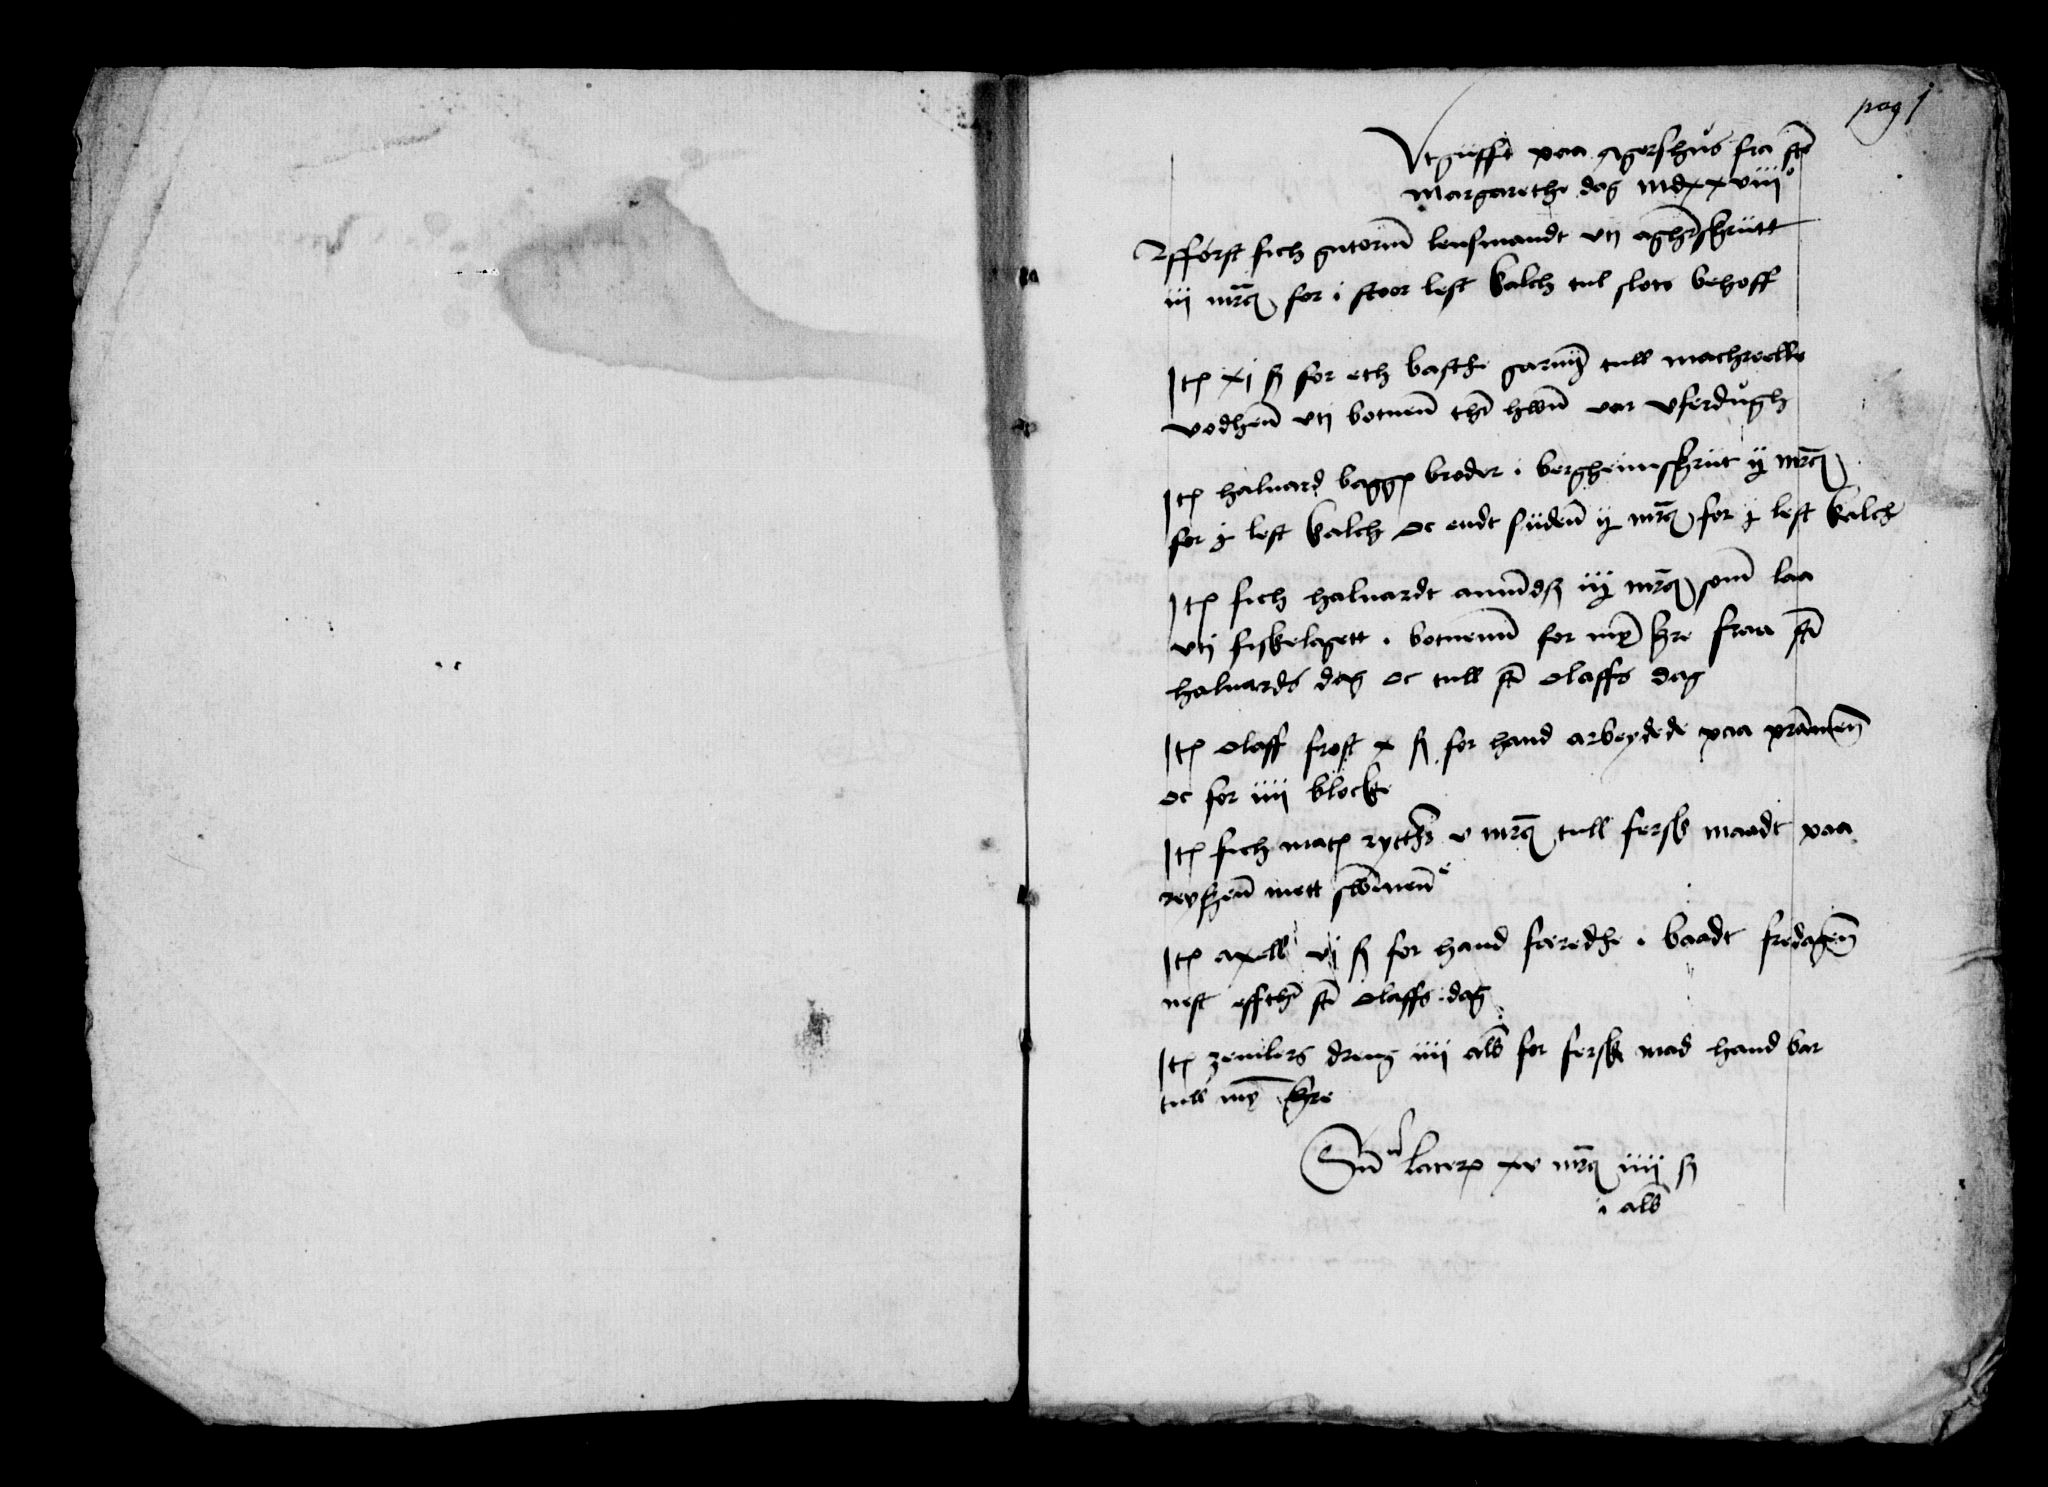 pag 1
Vtgüfft paa Agershus fra ste
Margarethe dag mdxxviiiº
Fförst fich gutorm lensmandt vtj aghersherütt
iij mrc for i stoor lest kalch till slots behoff
Itm xj ß for eth basthe garnn till machrelle
vodhenn vtj botnenn thn hwn var vferdugh
Itm haluard bagges broder i bergheimsherüt ij mrc
for j lest kalch oc endt sidenn ij mrc for j lest kalch
Itm fich haluardt amundß iij mrc som laa
vtj fiskelagett i botnenn for myn herre fraa sti
haluards dag oc till sti olaffs dag
Itm olaff frost x ß for hand arbeydede paa pramenn
oc for iiij blocke
Itm fich mats rytther v mrc till fersk maadt paa
reyßenn mett swinenn
Itm axell vj ß for hand færedhe i baadt fredagenn
nest effther sti olaffs dag
Itm zemlers dreng iiij alb for fersk mad hand bar
till myn herre
Sum lateris xv mrc iiij ß
i alb